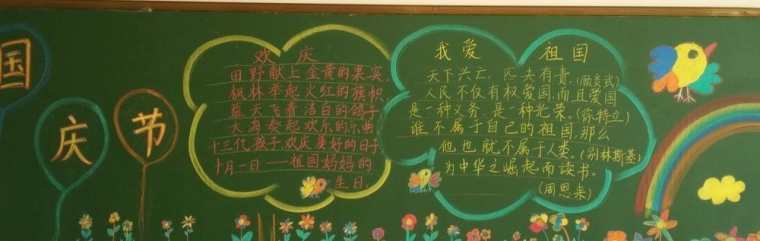 国
庆
节
欢 庆
田野献上金黄的果实,
枫林举起火红的旗帜
蓝天飞着洁白的鸽子
大海奏起欢乐的乐曲
十三亿孩子,欢庆美好的日子
十月一日——祖国妈妈的
生日
我爱 祖国
天下兴亡,匹夫有责,(顾炎武)
人民不仅有权爱国,而且爱国
是一种义务,是一种光荣。(徐特立)
谁不属于自己的祖国,那么
他也就不属于人类。(别林斯基)
为中华之崛起而读书。
(周恩来)